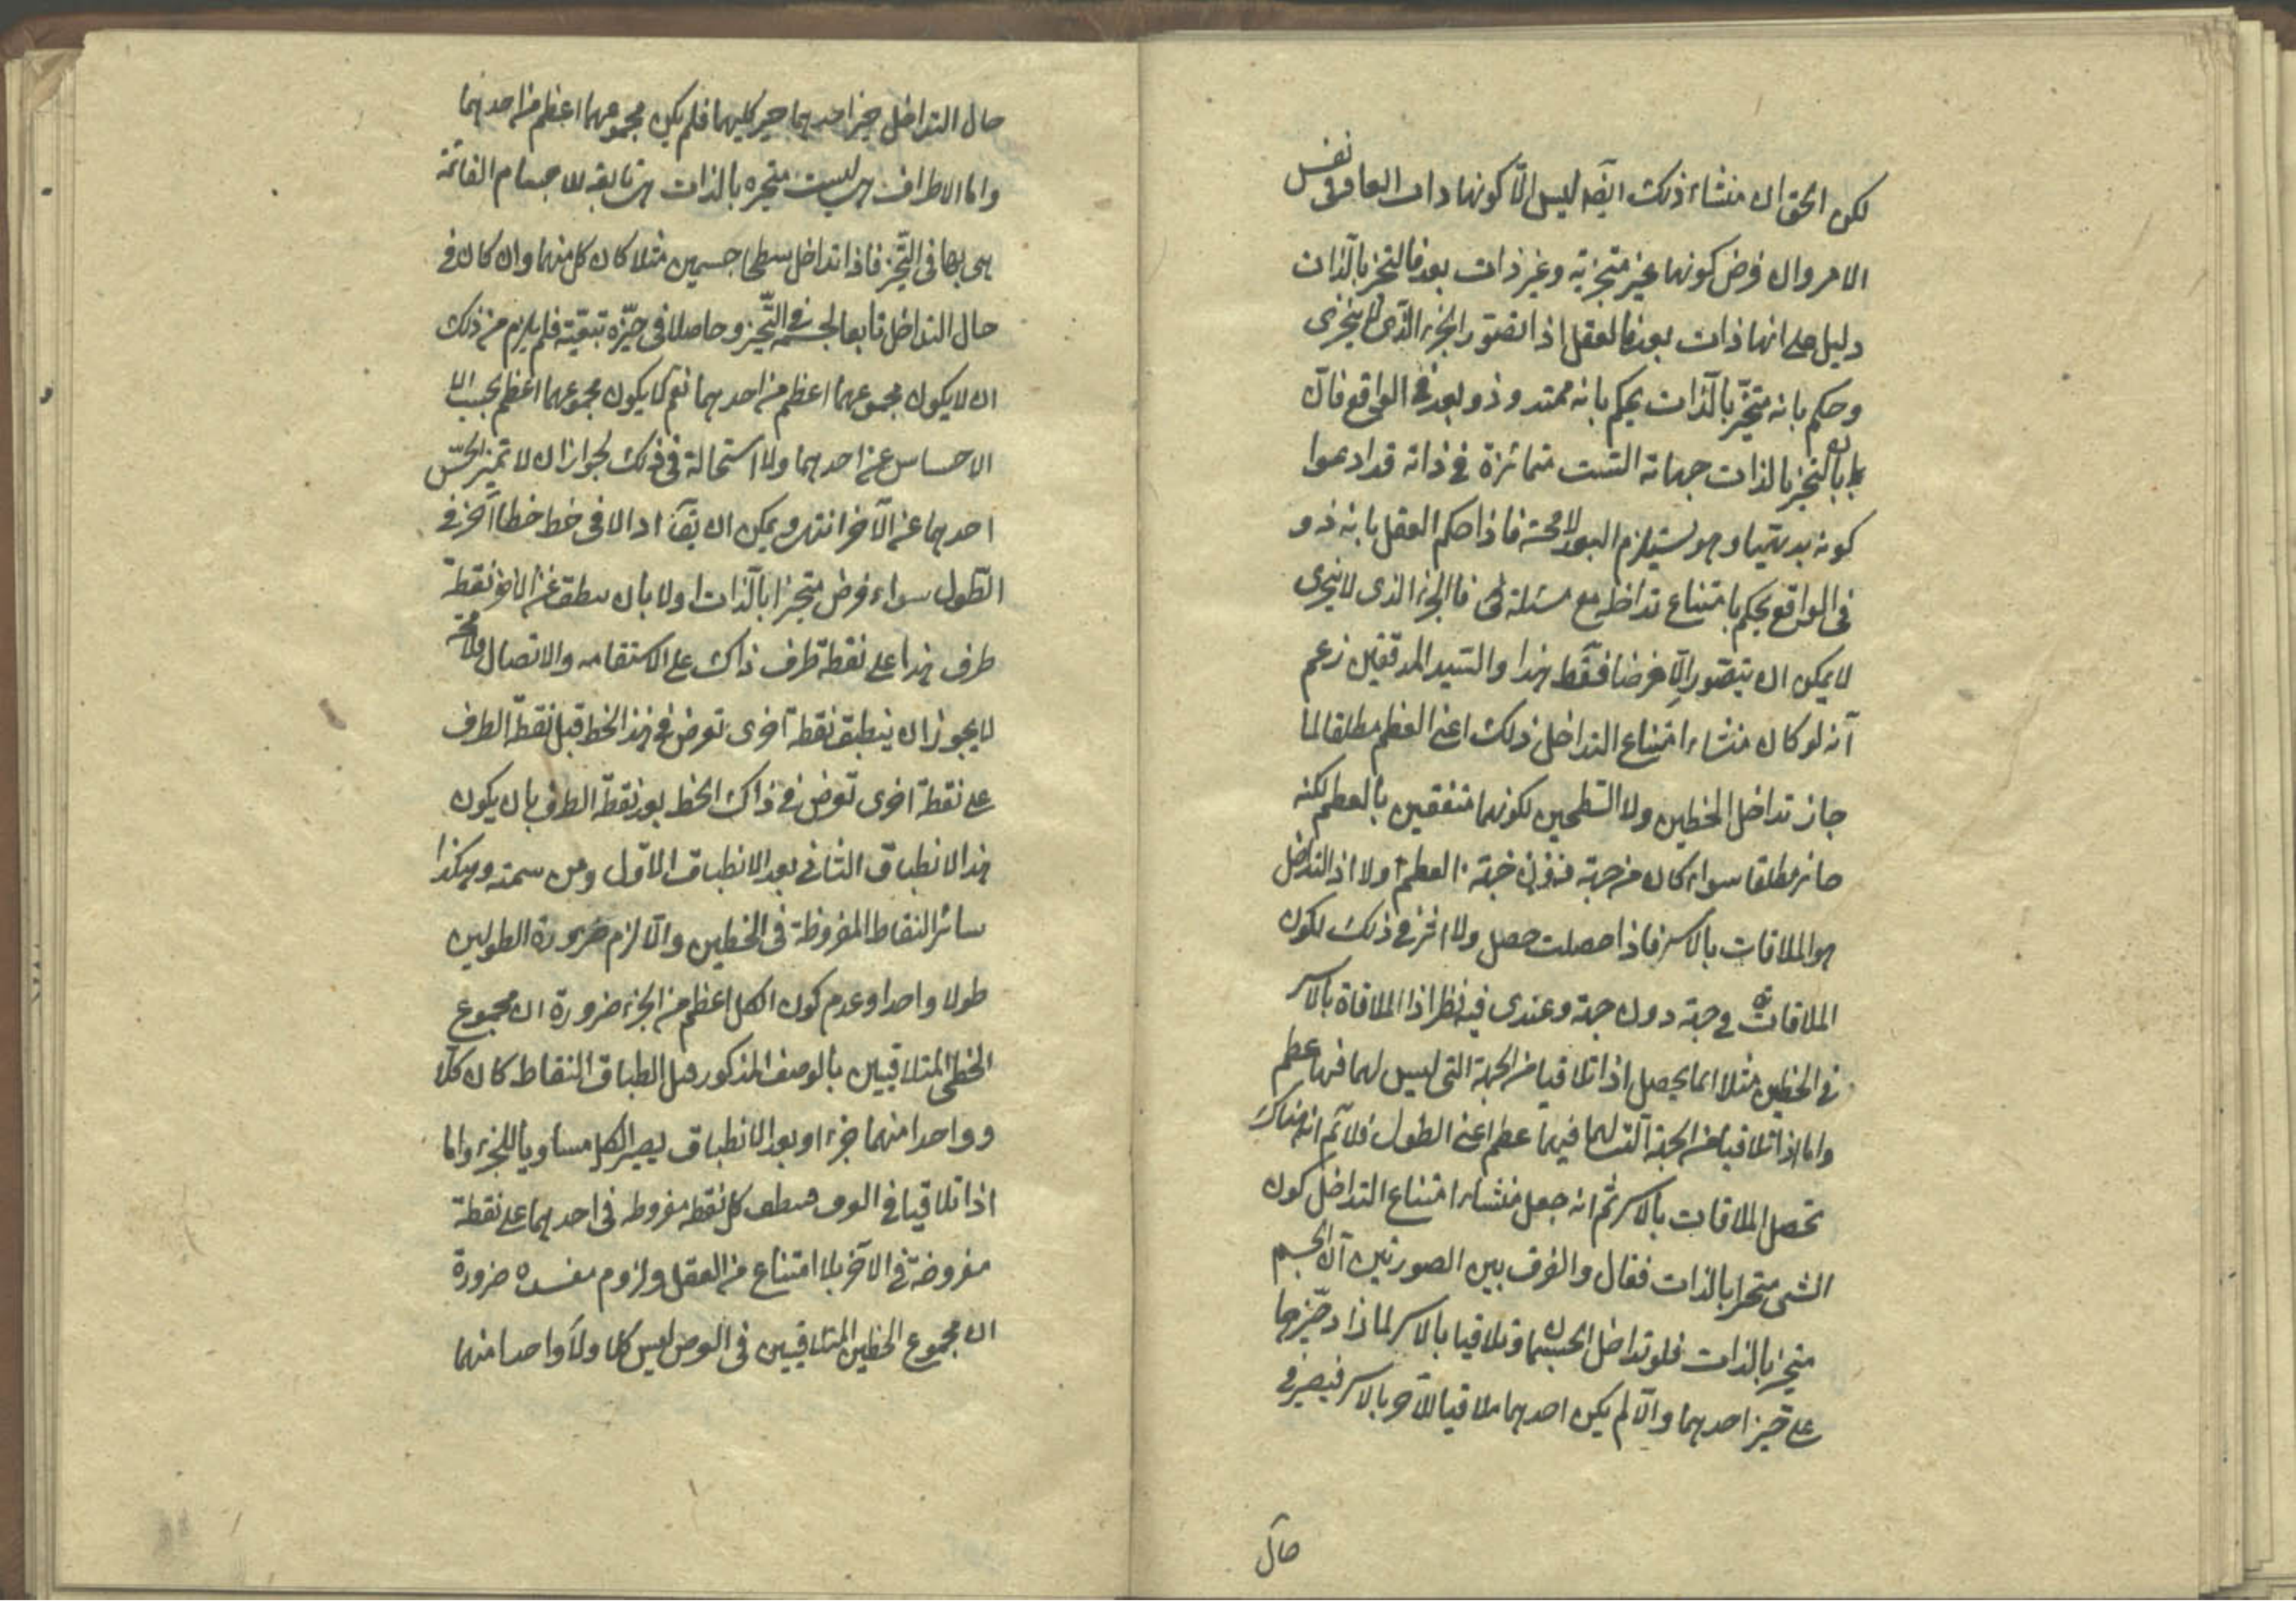 لكن الحق ان منشاء ذلك ايضه ليس الّا كونها ذات ابعاد فى نفس
الامر وان فرض كونها غير متجزية وغير ذات بعد فالتحيز بالذات
دليل على انها ذات بعد فالعقل اذا تصور الجزء الذى لا يتجزى
وحكم بانه متحيّز بالذات يحكم بانه ممتد وذو بعد فى الواقع فانّ
بان المتحيز بالذات جهاته الست متمائزة فى ذاته قد ادعوا
كونه بديهيا وهو يستلزم البعد لا محة فاذا حكم العقل بانه ذو
فى الواقع يحكم بامتناع تداخله مع مسئلة فالجزء الذى لا يتجزى
لا يمكن ان يتصور الّا فرضا فقط هذا والسيد المدققين زعم
انه لو كان منشاء امتناع التداخل ذلك اعنى العظم مطلقا لما
جاز تداخل الخطين ولا السطحين لكونهما متفقين بالعظم لكنه
جائز مطلقا سواء كان من جهة العظم اولا اذ التداخل
هو الملاقات بالاسر فاذا حصلت حصل ولا اثر فى ذلك لكون
الملاقات فى جهة دون جهة وعندى فيه نظر اذ الملاقاة بالاسر
فى الخطين مثلا انما يحصل اذا تلاقيا من الجهة التى ليس لهما فيها عظم
واما اذا تلاقيا من الجهة التى لهما فيها عظم اعنى الطول فلا نم انه هناك
تحصل الملاقات بالاسر ثم انه جعل منشاء امتناع التداخل كون
الشى متحيزا بالذات فقال والفرق بين الصورتين ان الجسم
متحيز بالذات فلو تداخل الجسمان وتلاقيا بالاسر لما زاد حيّزهما
على حيّز احدهما والّا لم يكن احدهما ملاقيا للآخر بالاسر فيصير فى
حال
حال التداخل حيز احدهما حيز كليهما فلم يكن مجموعهما اعظم من احدهما
واما الاطراف فهى ليست متحيزه بالذات بل تابعة للاجسام القائمة
هى بها فى التّحيز فاذا تداخل سطحا جسمين مثلا كان كل منهما وان كان فى
حال التداخل تابعا لجسمه فى التّحيز وحاصلا فى حيّزه تبعيّة فلم يلزم من ذلك
ان لا يكون مجموعهما اعظم من احدهما نعم لا يكون مجموعهما اعظم بحسب الا
الاحساس من احدهما ولا استحالة فى ذلك لجواز ان لا تميز الحسّ
احدهما عن الآخر انتهى ويمكن ان يقآ ادا لاقى خط خطا آخر فى
الطول سواء فرض متحيزا بالذات اولا بان ينطبق نقطة
طرف هذا على نقطة طرف ذاك على الاستقامه والاتصال فلا محة
لا يجوز ان ينطبق نقطة اخرى تفرض فى هذا الخط قبل نقطة الطرف
على نقطة اخرى تفرض فى ذاك الخط بعد نقطة الطرف بان يكون
هذا الانطباق الثانى بعد الانطباق الاول ومن سمته وهكذا
سائر النقاط المفروظة فى الخطين والّا لزم ضرورة الطولين
طولا واحدا وعدم كون الكل اعظم من الجزء ضرورة ان مجموع
الخطى المتلاقيين بالوصف المذكور قبل انطباق النقاط كان كلّا
وواحدا منهما جزء او بعد الانطباق يصير الكل مساويا للجزء واما
اذا تلاقيا فى العرض فينطبق كل نقطه مفروضه فى احدهما على نقطة
مفروضة فى الآخر بلا امتناع من العقل ولزوم مفسده ضرورة
ان مجموع الخطين المتلاقيين فى العرض ليس كلا ولا واحدا منهما